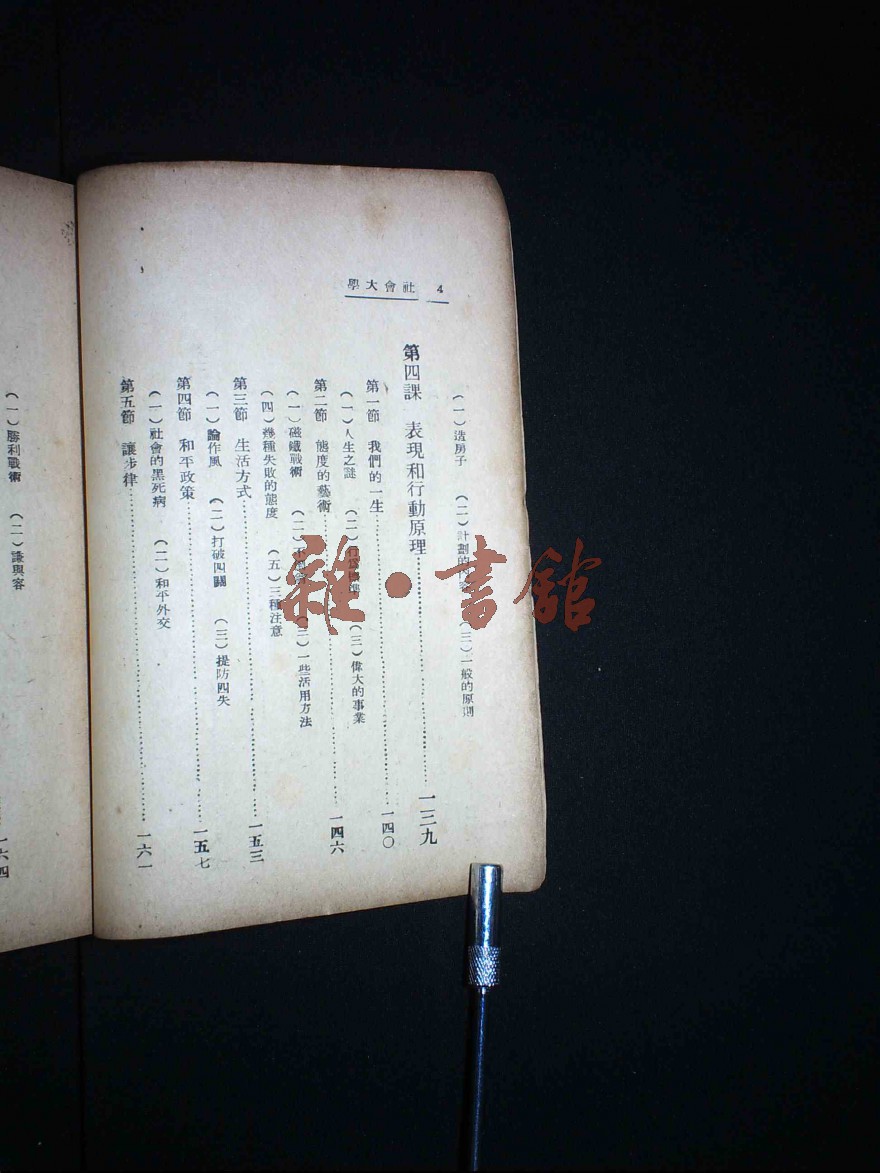 社會大學 4
(一)造房子 (二)計劃的 (三)一般的原則
第四課 表現和行動原理 一三九
第一節 我們的一生 一四〇
(一)人生之謎 (二) (三)偉大的事業
第二節 態度的藝術 一四六
(一)磁鐵戰術 (二) (三)一些活用方法
(四)幾種失敗的態度 (五)三種注意
第三節 生活方式 一五三
(一)論作風 (二)打破四關 (三)提防四失
第四節 和平政策 一五七
(一)社會的黑死病 (二)和平外交
第五節 讓步律 一六一
(一)勝利戰術 (二)謙與容
一六四
雜·書館